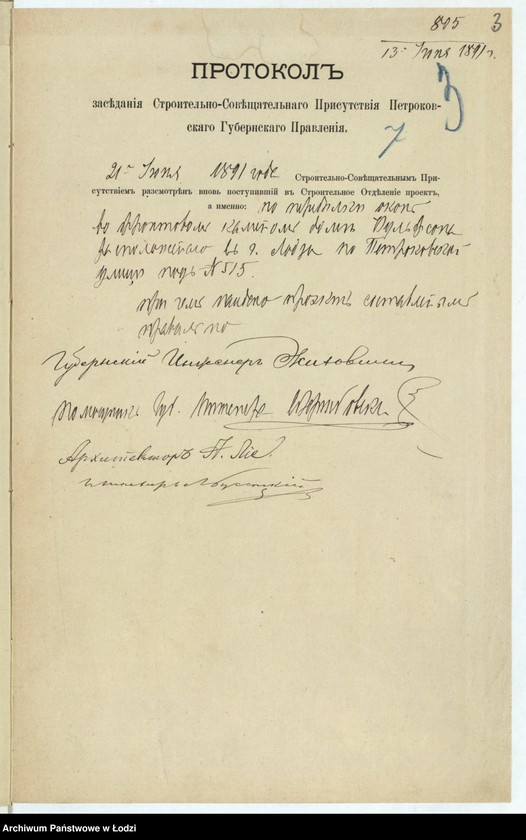 805 3
13 Июня 1891 г.
ПРОТОКОЛЪ
засѣданія Строительно-Совѣщательнаго Присутствія Петроков-
скаго Губернскаго Правленія.
3
7
21 Июня 1891 года Строительно-Совѣщательнымъ При-
сутствіемъ разсмотрѣнъ вновь поступившій въ Строительное Отдѣленіе проектъ,
а именно: по передѣлкѣ оконъ
въ фронтовомъ домѣ
въ г. Лодзи по Петроковской
улицѣ подъ № 515.
при чемъ найдено проектъ составленнымъ
правильно
Губернскій Инженеръ
Помощникъ Губ. Инженера
Архитекторъ
Archiwum Państwowe w Łodzi